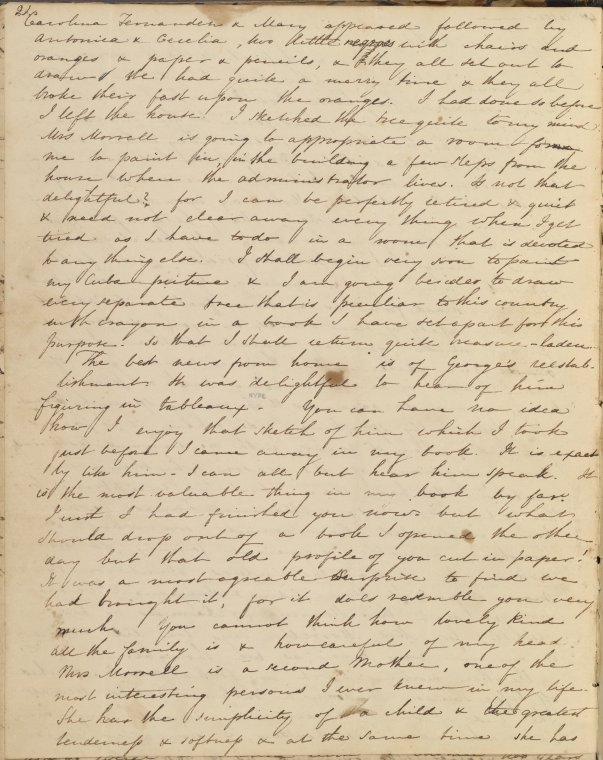 21
Carolina Fernandez & Mary appeared followed by
Antonica & Cecelia, two little negroes with chairs and
oranges & paper & pencils, & they all set out to
draw & we had quite a merry time & they all
broke their fast upon the oranges. I had done so before
I left the house. I sketched the tree quite to my mind.
Mrs Morrell is going to appropriate a room for
me to paint in, in the building a few steps from the
house where the administrador lives. Is not that
delightful? for I can be perfectly retired & quiet
& need not clear away every thing when I get
tired as I have to do in a room that is devoted
to any thing else. I shall begin very soon to paint
my Cuba picture & I am going besides to draw
every separate tree that is peculiar to this country
with crayon in a book I have set apart for this
purpose. So that I shall return quite treasure-laden.
The best news from home is of George's reestab-
lishment. It was delightful to hear of him
figuring in tableaux. You can have no idea
how I enjoy that sketch of him which I took
just before I came away in my book. It is exact
ly like him - I can all but hear him speak. It
is the most valuable thing in my book by far.
I wish I had finished you now - but what
should drop out of a book I opened the other
day but that old profile of you cut in paper!
It was a most agreable surprise to find we
had brought it, for it does resemble you very
much. You cannot think how lovely kind
all the family is & how careful of my head.
Mrs Morrell is a second Mother, one of the
most interesting persons I ever knew in my life.
She has the simplicity of a child & the greatest
tenderness & softness & at the same time she has
NYPL